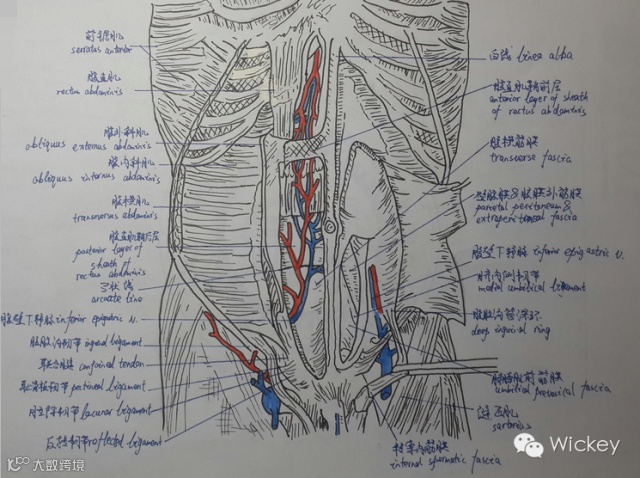 前锯肌
serratus anterior
腹直肌
rectus abdominis
腹外斜肌
obliquus externus abdominis
腹内斜肌
obliquus internus abdominis
腹横肌
transversus abdominis
腹直肌鞘后层
posterior layer of
sheath of
rectus abdominis
弓状线
arcuate line
腹壁下静脉 inferior epigastric v.
腹股沟韧带 inguinal ligament
联合腱 conjoined tendon
耻骨梳韧带 pectineal ligament
腔隙韧带 lacunar ligament
反转韧带 reflected ligament
白线 linea alba
腹直肌鞘前层
anterior layer of sheath
of rectus abdominis
腹横筋膜
transverse fascia
壁腹膜&腹膜外筋膜
parietal peritoneum &
extraperitoneal fascia
腹壁下静脉 inferior epigastric v.
脐内侧韧带
medial umbilical ligament
腹股沟管深环
deep inguinal ring
脐膀胱前筋膜
umbilical prevesical fascia
缝匠肌
sartorius
精索内筋膜
internal spermatic fascia
Wickey
10100 大数跨境